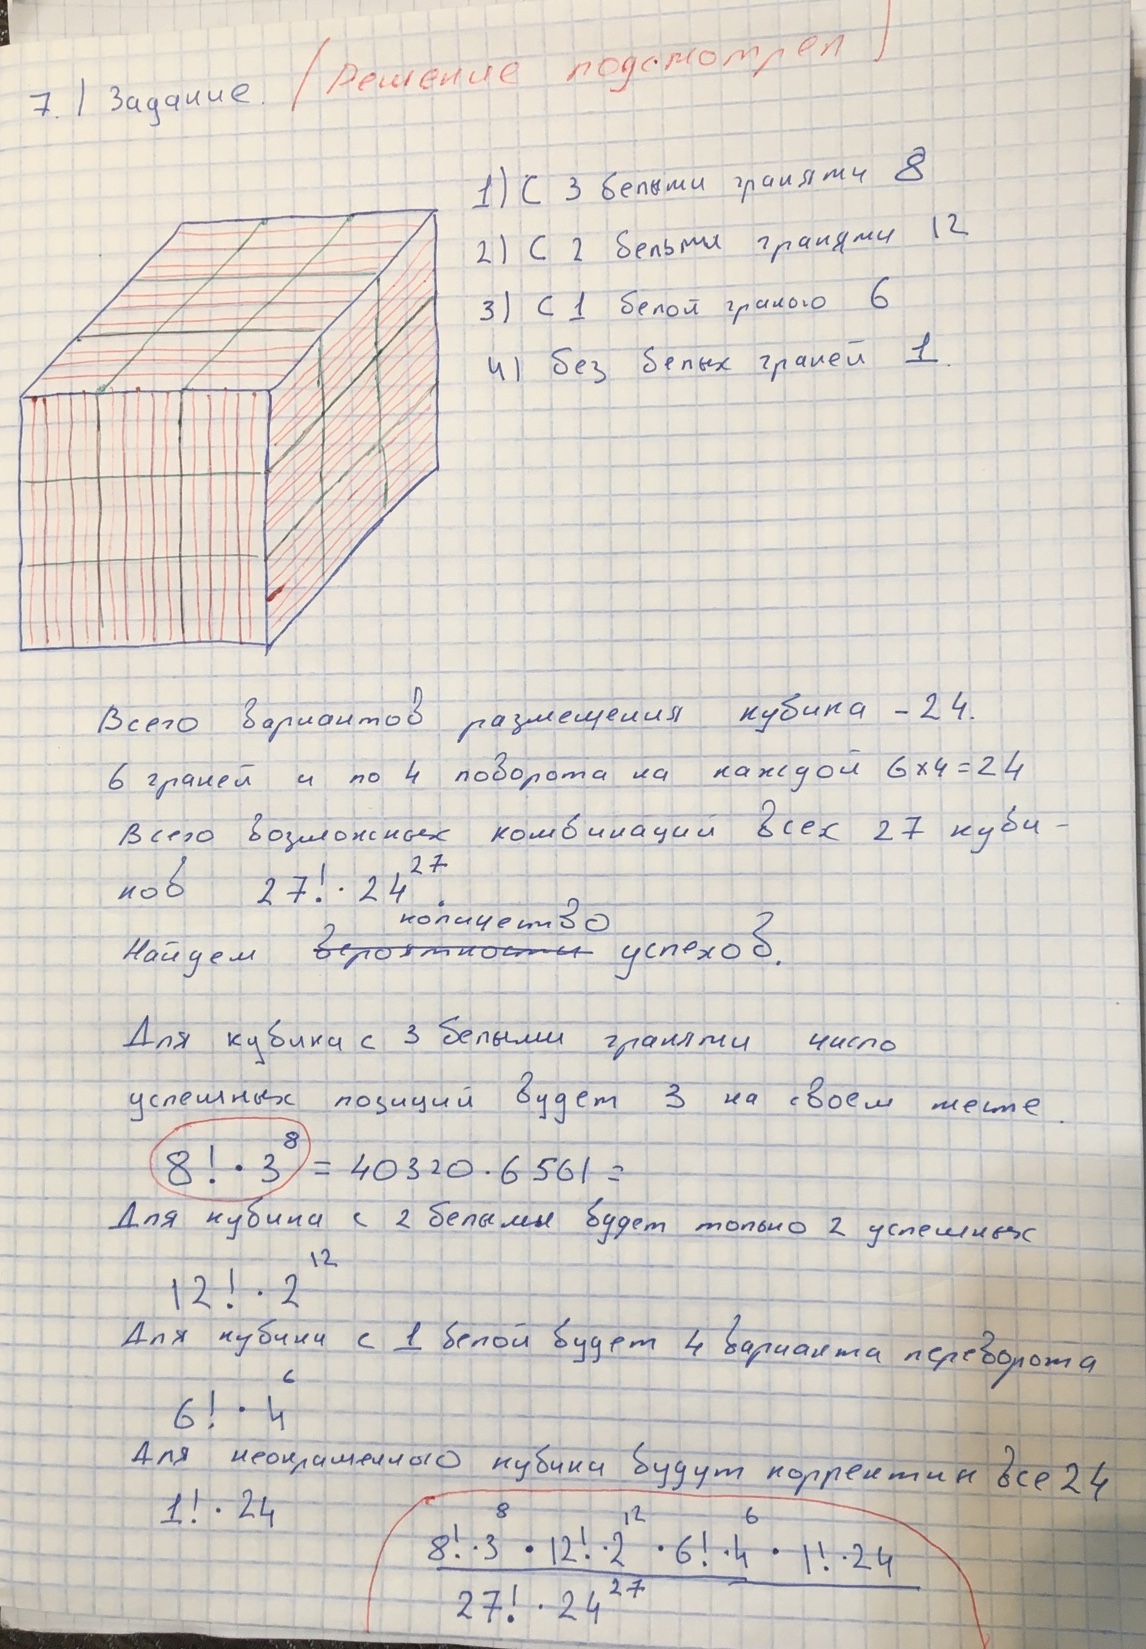 7.) Задание. (Решение подсмотрел)
1) С 3 белыми гранями 8
2) С 2 белыми гранями 12
3) С 1 белой граною 6
4) без белых граней 1.
Всего вариантов размещения кубика - 24.
6 граней и по 4 поворота на каждой 6×4=24
Всего возможных комбинаций всех 27 куби-
ков 27! · 24^27.
количество
Найдем вероятности успехов.
Для кубика с 3 белыми гранями число
успешных позиций будет 3 на своем месте.
8! · 3^8 = 40320 · 6561 =
Для кубика с 2 белыми будет только 2 успешных
12! · 2^12
Для кубика с 1 белой будет 4 варианта переворота
6! · 4^6
Для неокрашенного кубика будут корректны все 24
1! · 24
8! · 3^8 · 12! · 2^12 · 6! · 4^6 · 1! · 24
27! · 24^27